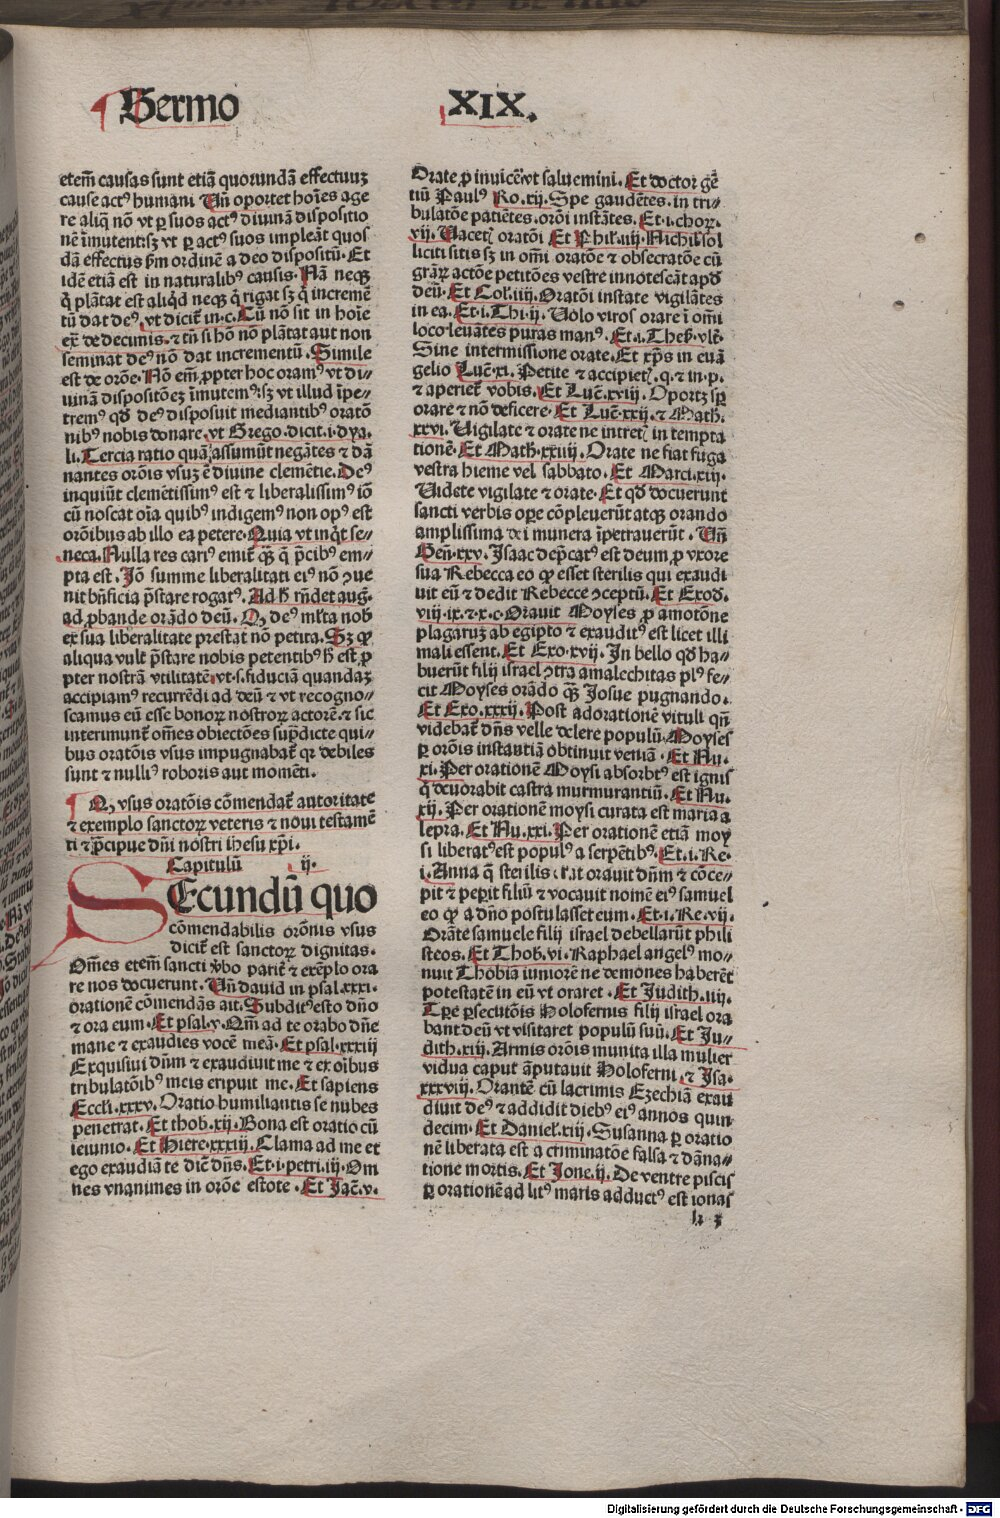 Sermo XIX.
etem̄ causas sunt etiā quorundā effectuuꝫ
cause actꝰ humani Uñ oportet hoīes age
re aliq̄ nō vt ꝑ suos actꝰ diuinā dispositio
nē īmutent sꝫ vt ꝑ actꝰ suos impleāt quos
dā effectus ẜm ordinē a deo dispositū. Et
idē etiā est in naturalibꝰ causis. Nā neqꝫ
q̄ plātat est aliqͥd neqꝫ q̄ rigat sꝫ q̄ incremē
tū dat deꝰ, vt dicit̄ in.c. Cū nō sit in hoīe
ex̄ de decimis. ⁊ tn̄ si hō nō plātat aut non
seminat deꝰ nō dat incrementū. Simile
est de orōe. Nō em̄ ꝓpter hoc oramꝰ vt di⸗
uinā dispositōeꝫ īmutemꝰ: sꝫ vt illud īpe⸗
tremꝰ qd̄ deꝰ disposuit mediantibꝰ oratō
nibꝰ nobis donare. vt Grego. dicit .i. dya.
li. Tercia ratio quā assumūt negātes ⁊ dā
nantes orōis vsuꝫ ē diuine clemētie. Deꝰ
inquiūt clemētissimꝰ est ⁊ liberalissimꝰ iō
cū noscat oīa quibꝰ indigemꝰ non opꝰ est
orōibus ab illo ea petere. Quia vt inq̄t se⸗
neca. Nulla res cariꝰ emit̄ qꝫ̄ q̄ p̄cibꝰ em⸗
pta est. Iō summe liberalitati eiꝰ nō ↄue
nit bn̄ficia p̄stare rogatꝰ. Ad hͦ rn̄det aug.
ad ꝓbande orādo deū. Qꝫ deꝰ ml̄ta nob̄
ex sua liberalitate prestat nō petita. Sꝫ ꝙ
aliqua vult p̄stare nobis petentibꝰ hͦ est ꝓ
pter nostrā vtilitatē vt.s. fiduciā quandaꝫ
accipiamꝰ recurrēdi ad deū ⁊ vt recogno⸗
scamus eū esse bonoꝝ nostroꝝ actorē. ⁊ sic
interimunt̄ om̄es obiectōes sup̄dicte qui⸗
bus oratōis vsus impugnabat̄ qꝛ debiles
sunt ⁊ nulliꝰ roboris aut momēti.
Qꝫ vsus oratōis cōmendat̄ autoritate
⁊ exemplo sanctoꝝ veteris ⁊ noui testamē
ti ⁊ p̄cipue dn̄i nostri ihesu xp̄i.
Capitulū ij.
SEcundū quo
cōmendabilis orōnis vsus
dicit̄ est sanctoꝝ dignitas.
Om̄es etem̄ sancti v̄bo parit̄ ⁊ exēplo ora
re nos docuerunt. Uñ dauid in psal.xxxi.
orationē cōmendās ait. Subditꝰ esto dn̄o
⁊ ora eum. Et psal.v. Qm̄ ad te orabo dn̄e
mane ⁊ exaudies vocē meā. Et psal.xxxiij
Exquisiui dn̄m ⁊ exaudiuit me ⁊ ex oībus
tribulatōibꝰ meis eripuit me. Et sapiens
Eccłi.xxxv. Oratio humiliantis se nubes
penetrat. Et thob.xij. Bona est oratio cū
ieiunio. Et Hiere.xxxiij. Clama ad me et
ego exaudiā te dic̄ dn̄s. Et .i. petri.iij. Om
nes vnanimes in orōe estote. Et Jac̄.v.
Orate ꝓ inuicē vt saluemini. Et doctor gē
tiū Paulꝰ Ro.xij. Spe gaudētes. in tri⸗
bulatōe patiētes. orōi instātes. Et .i. choꝝ.
vij. Uacetꝭ oratōi Et Phił.iiij. Nichil sol
liciti sitis sꝫ in om̄i oratōe ⁊ obsecratōe cū
gr̄aꝝ actōe petitōes vestre innotescāt apd̄
deū. Et Coł.iiij. Oratōi instate vigilātes
in ea. Et .i. Thi.ij. Uolo viros orare ī om̄i
loco leuātes puras manꝰ. Et.i. Thess. vlt̄.
Sine intermissione orate. Et xp̄s in euā
gelio Luc̄.xi. Petite ⁊ accipietꝭ. q. ⁊ in.p.
⁊ aperiet̄ vobis. Et Luc̄.xviij. Oportꝫ sp̄
orare ⁊ nō deficere. Et Luc̄.xxij. ⁊ Math.
xxvi. Uigilate ⁊ orate ne intretꝭ in tempta
tionē. Et Math̄.xxiiij. Orate ne fiat fuga
vestra hieme vel sabbato. Et Marci.xiij.
Uidete vigilate ⁊ orate. Et qd̄ docuerunt
sancti verbis oꝑe cōpleuerūt atqꝫ orando
amplissima dei munera īpetrauerūt. Uñ
Geñ.xxv. Isaac dep̄catꝰ est deum ꝓ vxore
sua Rebecca eo ꝙ esset sterilis qui exaudi
uit eū ⁊ dedit Rebecce ↄceptū. Et Exod.
viij.ix.⁊.x.c. Orauit Moyses ꝓ amotōne
plagaruꝫ ab egipto ⁊ exauditꝰ est licet illi
mali essent. Et Exo.xvij. In bello qd̄ ha⸗
buerūt filij israel ↄtra amalechitas plꝰ fe⸗
cit Moyses orādo qꝫ̄ Josue pugnando.
Et Exo.xxxij. Post adorationē vituli qn̄
videbat̄ dn̄s velle delere populū. Moyses
ꝑ orōis instantiā obtinuit veniā. Et Nu.
xi. Per orationē Moysi absorbtꝰ est ignis
q̄ deuorabit castra murmurantiū. Et Nu.
xij. Per orationē moysi curata est maria a
lepra. Et Nu.xxi. Per orationē etiā moy
si liberatꝰ est populꝰ a serpētibꝰ. Et.i. Re.
i. Anna q̄ sterilis erat orauit dn̄m ⁊ cōce⸗
pit ⁊ peꝑit filiū ⁊ vocauit nomē eiꝰ samuel
eo ꝙ a dn̄o postulasset eum. Et.i. Re.vij.
Orāte samuele filij israel debellarūt phili
steos. Et Thob.vi. Raphael angelꝰ mo⸗
nuit Thobiā iuniorē ne demones haberēt
potestatē in eū vt oraret. Et Judith.iiij.
Tꝑe ꝑsecutōis Holofernis filij israel ora
bant deū vt visitaret populū suū. Et Ju⸗
dith.xiij. Armis orōis munita illa mulier
vidua caput āputauit Holoferni. ⁊ Isa.
xxxviij. Orantē cū lacrimis Ezechiā exau
diuit deꝰ ⁊ addidit diebꝰ eiꝰ annos quin
decim. Et Danieł.xiij. Susanna ꝑ oratio
nē liberata est a criminatōe falsa ⁊ dāna⸗
tione mortis. Et Jone.ij. De ventre piscis
ꝑ orationē ad litꝰ maris adductꝰ est ionas
h 3
Digitalisierung gefördert durch die Deutsche Forschungsgemeinschaft - DFG